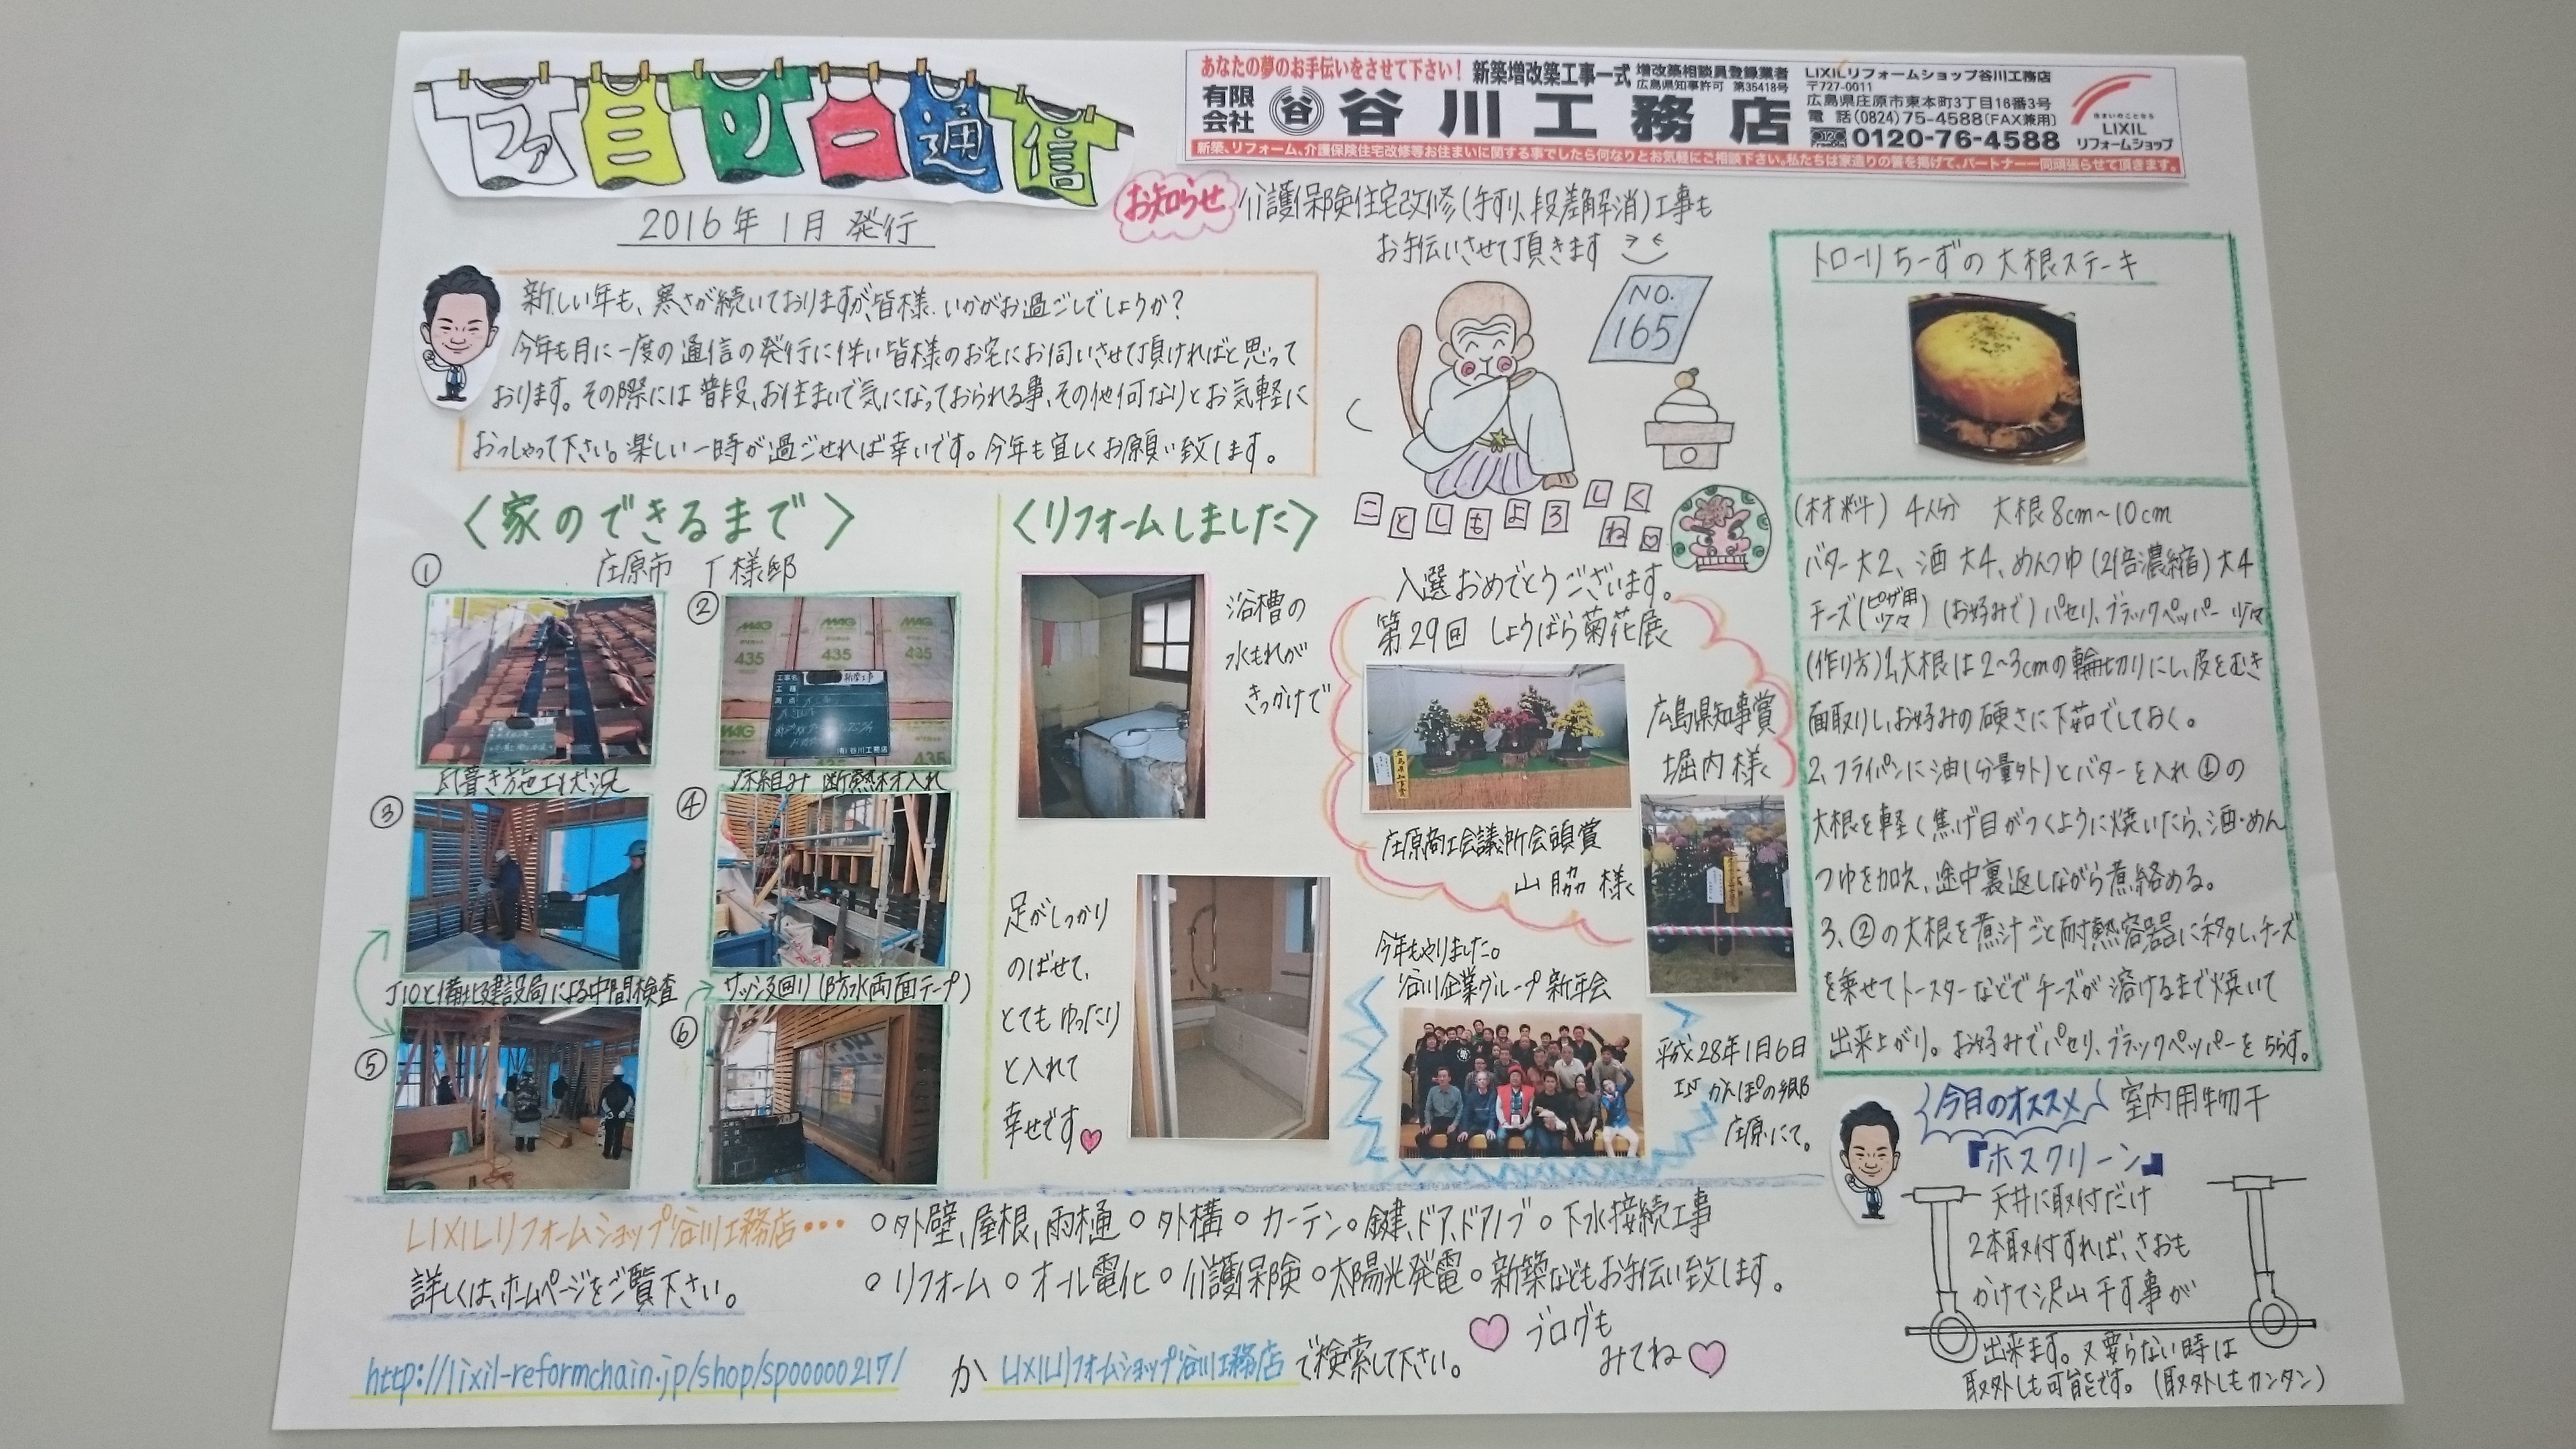 ファミリー通信
2016年1月 発行
あなたの夢のお手伝いをさせて下さい!
新築増改築工事一式
増改築相談員登録業者
広島県知事許可 第35418号
有限会社 谷 谷川工務店
LIXILリフォームショップ谷川工務店
〒727-0011
広島県庄原市東本町3丁目16番3号
電話(0824)75-4588(FAX兼用)
0120-76-4588
住まいのことなら
LIXIL
リフォームショップ
新築、リフォーム、介護保険住宅改修等お住まいに関する事でしたら何なりとお気軽にご相談下さい。私たちは家造りの誉を掲げて、パートナー一同頑張らせて頂きます。
お知らせ 介護保険住宅改修(手すり、段差解消)工事も
お手伝いさせて頂きます
新しい年も、寒さが続いておりますが、皆様、いかがお過ごしでしょうか?
今年も月に一度の通信の発行に伴い皆様のお宅にお伺いさせて頂ければと思って
おります。その際には普段、お住まいで気になっておられる事、その他何なりとお気軽に
おっしゃって下さい。楽しい一時が過ごせれば幸いです。今年も宜しくお願い致します。
NO.
165
ことしもよろしく
ね♡
〈家のできるまで〉
庄原市 T様邸
①
②
MAG MAG MAG
435 435 435
瓦葺き施工状況
床組み 断熱材入れ
③
④
JIOと備北建設局による中間検査
サッシ廻り(防水両面テープ)
⑤
⑥
〈リフォームしました〉
浴槽の
水もれが
きっかけで
足がしっかり
のばせて、
とてもゆったり
と入れて
幸せです♡
入選おめでとうございます。
第29回 しょうばら菊花展
広島県知事賞
堀内様
庄原商工会議所会頭賞
山脇様
今年もやりました。
谷川企業グループ新年会
平成28年1月6日
IN かんぽの郷
庄原にて。
トローリちーずの大根ステーキ
(材料) 4人分 大根8cm~10cm
バター大2、酒大4、めんつゆ(2倍濃縮)大4
チーズ(ピザ用 少々)(お好みで)パセリ、ブラックペッパー少々
(作り方)1、大根は2~3cmの輪切りにし、皮をむき
面取りし、お好みの硬さに下茹でしておく。
2、フライパンに油(分量外)とバターを入れ①の
大根を軽く焦げ目がつくように焼いたら、酒・めん
つゆを加え、途中裏返しながら煮絡める。
3、②の大根を煮汁ごと耐熱容器に移し、チーズ
を乗せてトースターなどでチーズが溶けるまで焼いて
出来上がり。お好みでパセリ、ブラックペッパーをちらす。
今月のオススメ 室内用物干
『ホスクリーン』
天井に取付だけ
2本取付すれば、さおも
かけて沢山干す事が
出来ます。又要らない時は
取外しも可能です。(取外しもカンタン)
LIXILリフォームショップ谷川工務店・・・
○外壁、屋根、雨樋○外構○カーテン○鍵、ドア、ドアノブ○下水接続工事
○リフォーム○オール電化○介護保険○太陽光発電○新築などもお手伝い致します。
詳しくは、ホームページをご覧下さい。
http://lixil-reformchain.jp/shop/sp00000217/ か LIXILリフォームショップ谷川工務店で検索して下さい。
♡ブログも
みてね♡